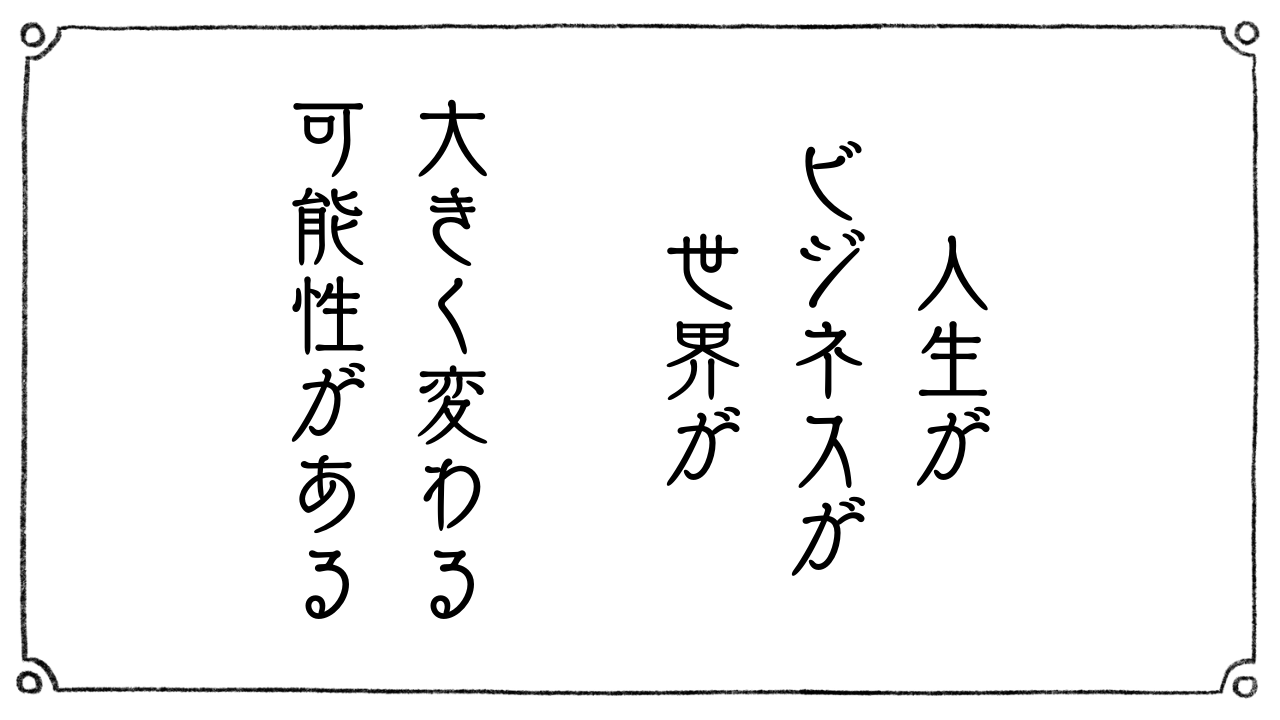 人生が
ビジネスが
世界が
大きく変わる
可能性がある